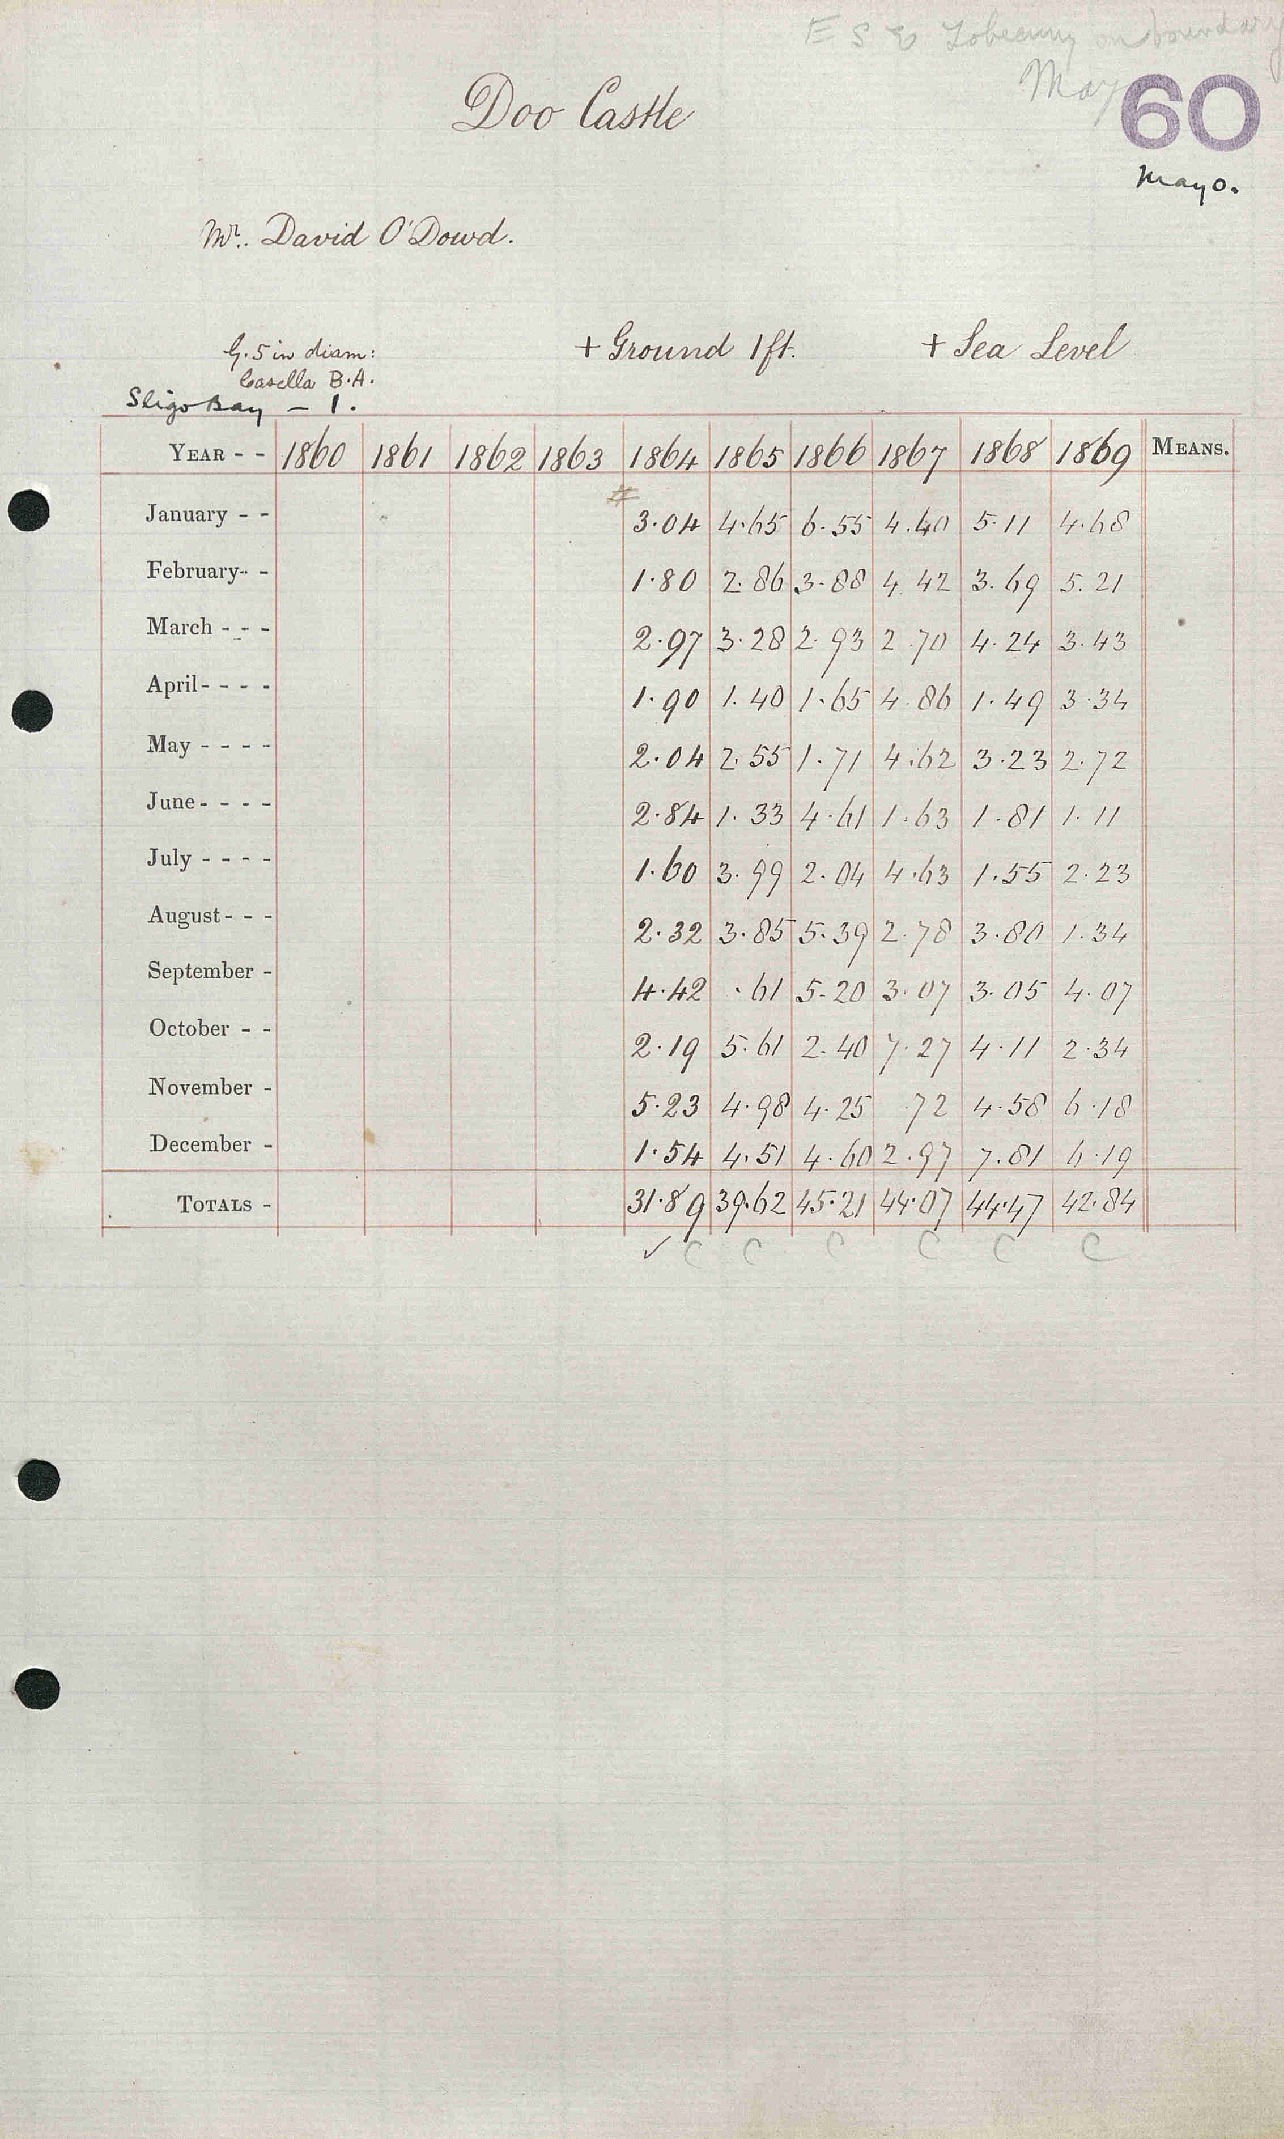 E S E Tobercurry on boundary
Mayo
60
Doo Castle
Mayo.
Mr. David O'Dowd.
G. 5 in diam:
Casella B.A.
+ Ground 1ft.
+ Sea Level
Sligo Bay – 1.
YEAR - - 1860 1861 1862 1863 1864 1865 1866 1867 1868 1869 MEANS.
#
January - - 3.04 4.65 6.55 4.40 5.11 4.68
February - - 1.80 2.86 3.88 4.42 3.69 5.21
March - - - 2.97 3.28 2.93 2.70 4.24 3.43
April - - - - 1.90 1.40 1.65 4.86 1.49 3.34
May - - - - 2.04 2.55 1.71 4.62 3.23 2.72
June - - - - 2.84 1.33 4.61 1.63 1.81 1.11
July - - - - 1.60 3.99 2.04 4.63 1.55 2.23
August - - - 2.32 3.85 5.39 2.78 3.80 1.34
September - 4.42 .61 5.20 3.07 3.05 4.07
October - - 2.19 5.61 2.40 7.27 4.11 2.34
November - 5.23 4.98 4.25 .72 4.58 6.18
December - 1.54 4.51 4.60 2.97 7.81 6.19
TOTALS - 31.89 39.62 45.21 44.07 44.47 42.84
✓ C C C C C C